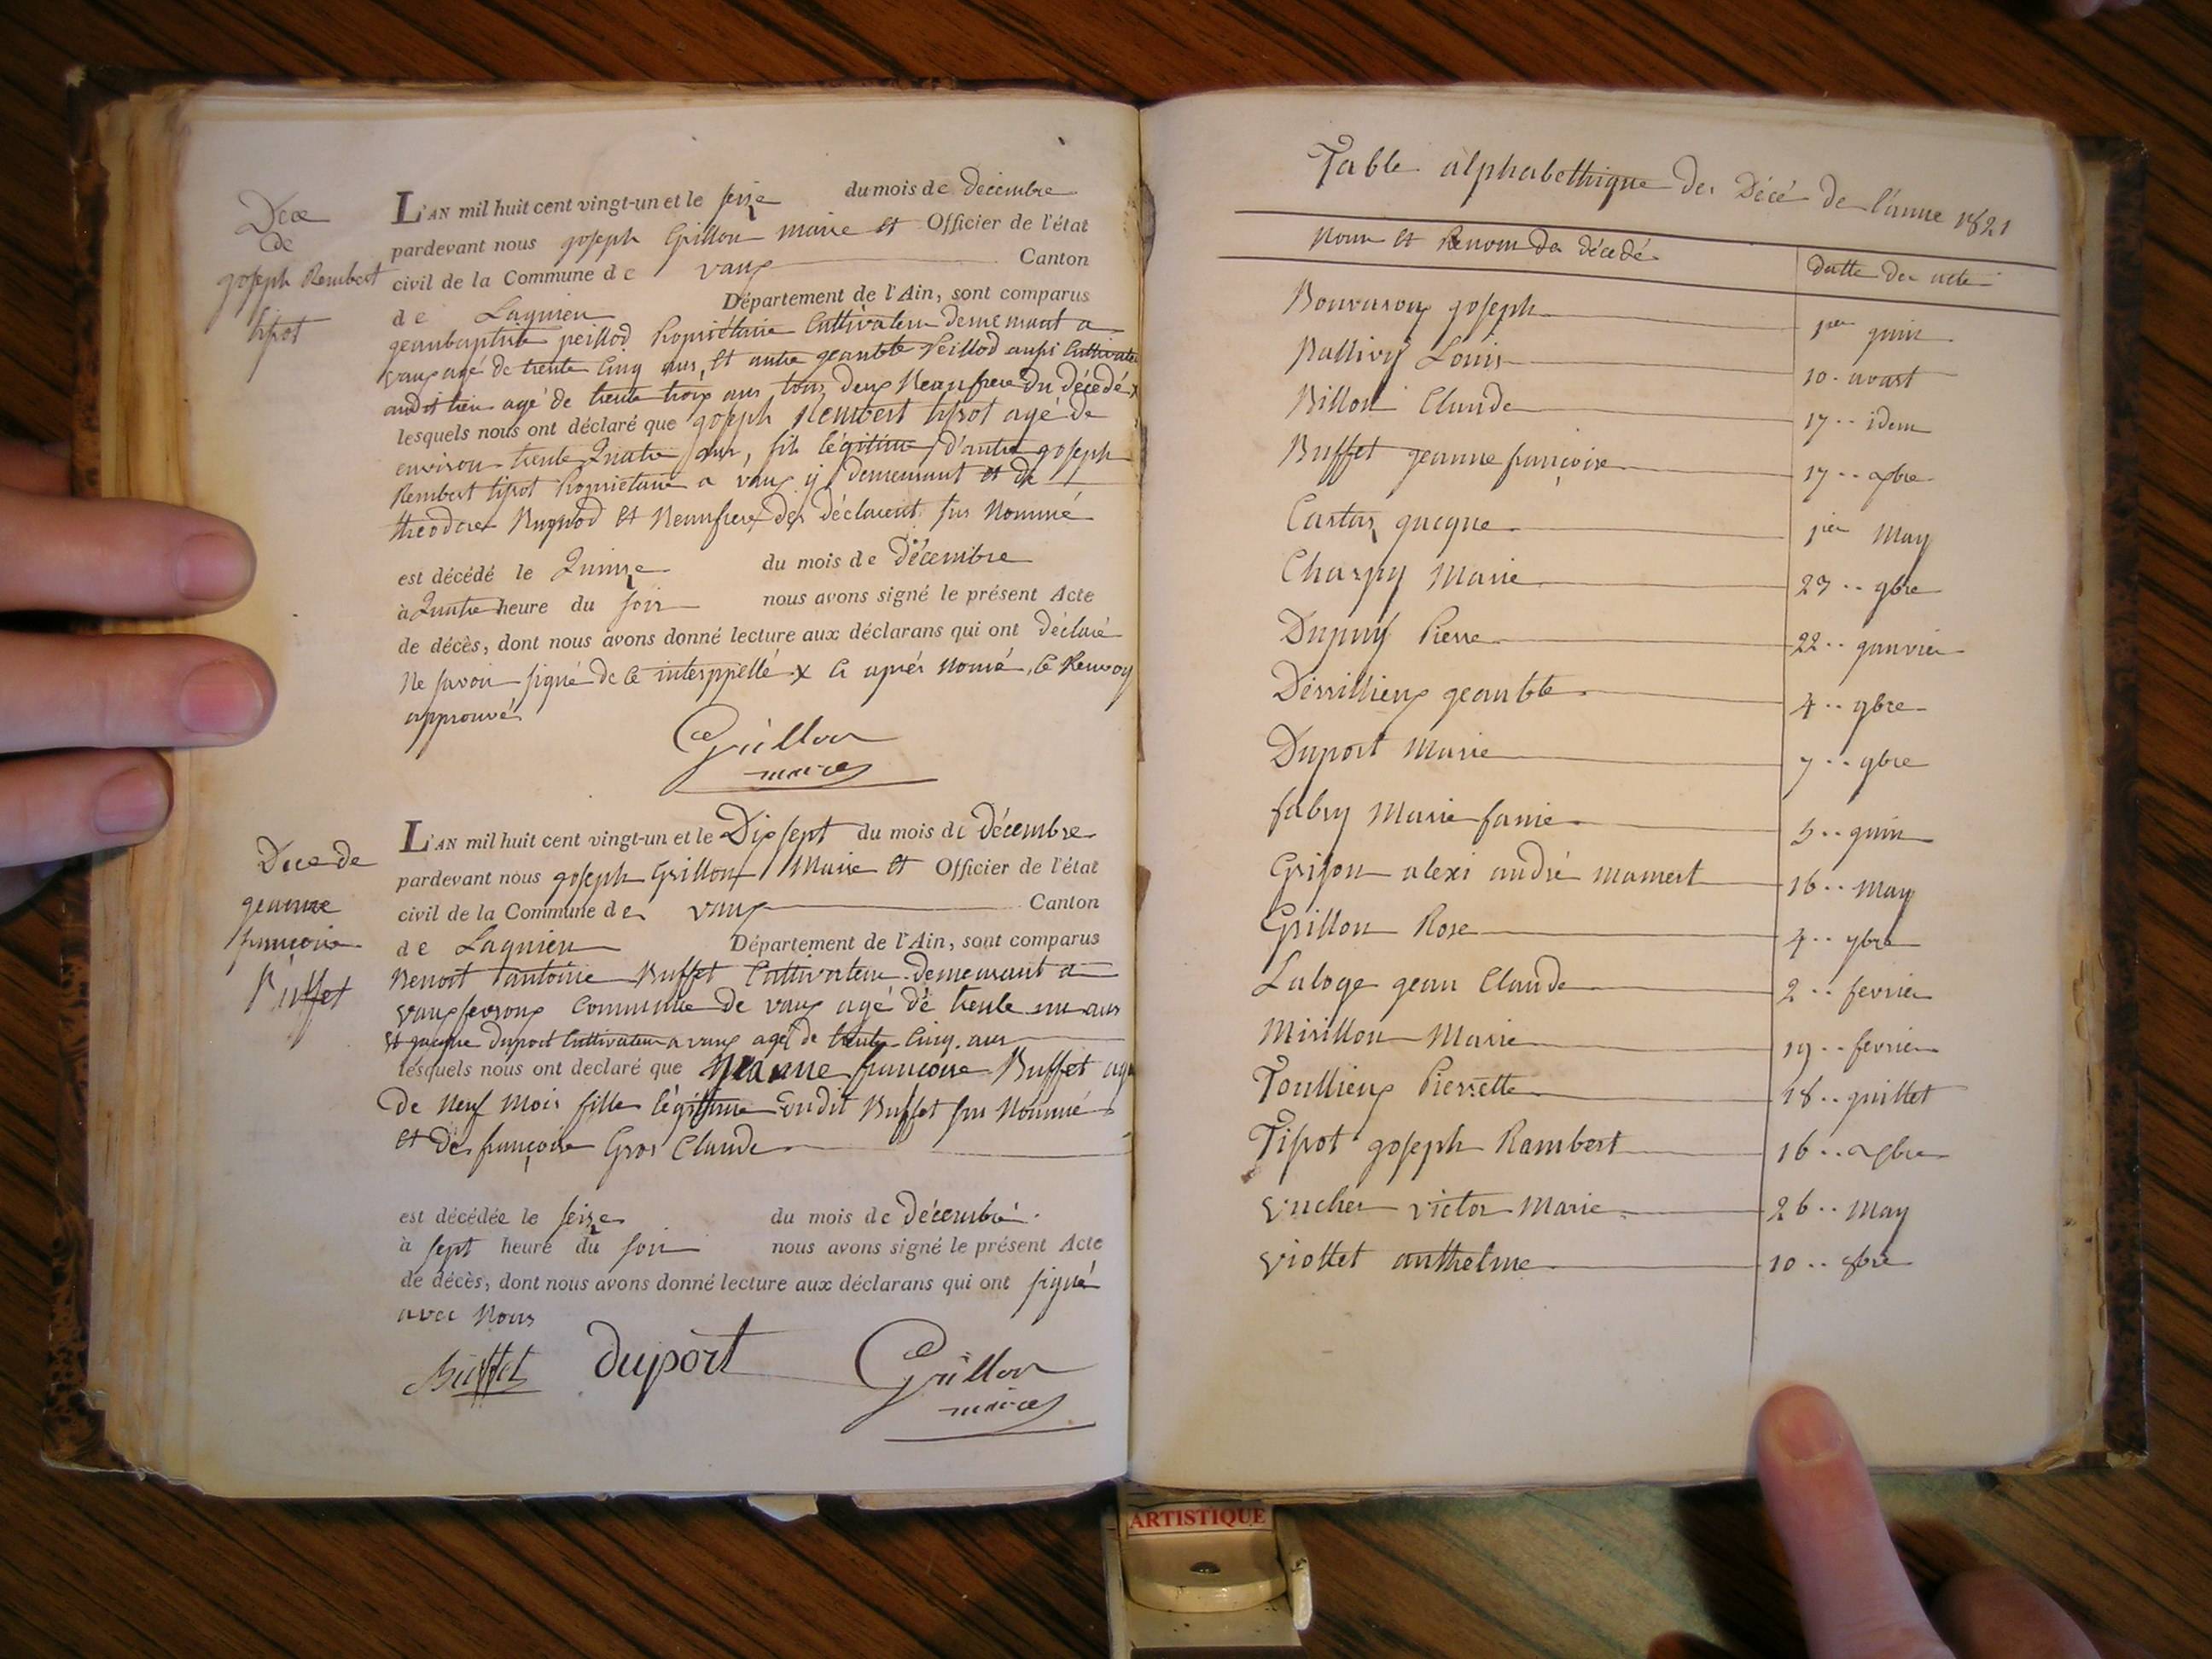 Dece
de
joseph Rembert
tipot
L'AN mil huit cent vingt-un et le seize du mois de décembre
pardevant nous joseph Grillon maire et Officier de l'état
civil de la Commune de vaux Canton
de Lagnieu Département de l'Ain, sont comparus
geanbaptiste peillod Propriétaire Cultivateur demeurant a
vaux agé de trente Cinq ans, et autre geanbte Peillod aussi Cultivateur
audit lieu agé de trente trois ans tous deux Beaufrere du décédé x
lesquels nous ont déclaré que joseph Rembert tipot agé de
environ trente Quatre ans, fils légitime d'autre joseph
Rembert tipot Propriétaire a vaux y demeurant et de
theodore et Beaufrere des déclarent sus Nommé
est décédé le Quinze du mois de Décembre
à Quatre heure du soir nous avons signé le présent Acte
de décès, dont nous avons donné lecture aux déclarans qui ont déclaré
Ne savoir signé de ce interppellé x ci après nomé, le Renvoy
approuvé
Grillon
maire
Dece de
geanne
françoise
Buffet
L'AN mil huit cent vingt-un et le Dix sept du mois de décembre
pardevant nous joseph Grillon Maire et Officier de l'état
civil de la Commune de vaux Canton
de Lagnieu Département de l'Ain, sont comparus
Benoit antoine Buffet Cultivateur demeurant a
vauxfevroux Commune de vaux agé de trente un ans
et jacque Duport Cultivateur a vaux agé de trente Cinq ans
lesquels nous ont declaré que jeanne francoise Buffet agé
de Neuf Mois fille légitime dudit Buffet sus Nommé
et de françoise Gros Claude
est décédée le seize du mois de décembre
à sept heure du soir nous avons signé le présent Acte
de décès, dont nous avons donné lecture aux déclarans qui ont signé
avec Nous
Buffet duport Grillon
maire
Table alphabethique des Décé de l'année 1821
Nom et Prenom des décédé datte des acte
Bouvaroux joseph 1er juin
Ballivy Louis 10.. avast
Billon Claude 17.. idem
Buffet jeanne françoise 17.. xbre
Castas jacque 1er May
Charpy Marie 27.. 9bre
Dupuy Pierre 22.. janvier
Dérrillieux geanbte 4.. 9bre
Duport Marie 7.. 9bre
fabry Marie fanie 5.. juin
Grison alexi andré mamert 16.. May
Grillon Rose 4.. 9bre
Laloge jean Claude 2.. fevrier
Mirillon Marie 19.. fevrier
Toullieux Pierrette 18.. juillet
Tipot joseph Rambert 16.. xbre
vucher victor Marie 26.. May
viottet anthelme 10.. 8bre
ARTISTIQUE